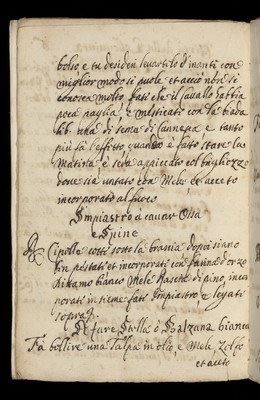 bolso e tu desideri levartilo d'inanti con
miglior modo si puole et acciò non si
conosca molto fati che il Cavallo habbia
poca paglia, e mesticati con la biada
lib. una di sema di Cannepa e tanto
più fà l'effetto quando è fatto stare la
Matina à seda appicato col brigliozzo
dove sia untato con Mele et aceto
incorporato al fuoco
Impiastro à cavar Ossa
e Spine
Rx Cipolle cotte sotto la brascia dopoi siano
ben pestati et incorporati con farina d'orzo
Dittamo bianco Mele Rascia di pino, incor
porati insieme fate Impiastro e legati
sopra
A fare Stella ò Balzana bianca
Fa bollire una Talpa in olio, e Mele, Zolfo
et aceto